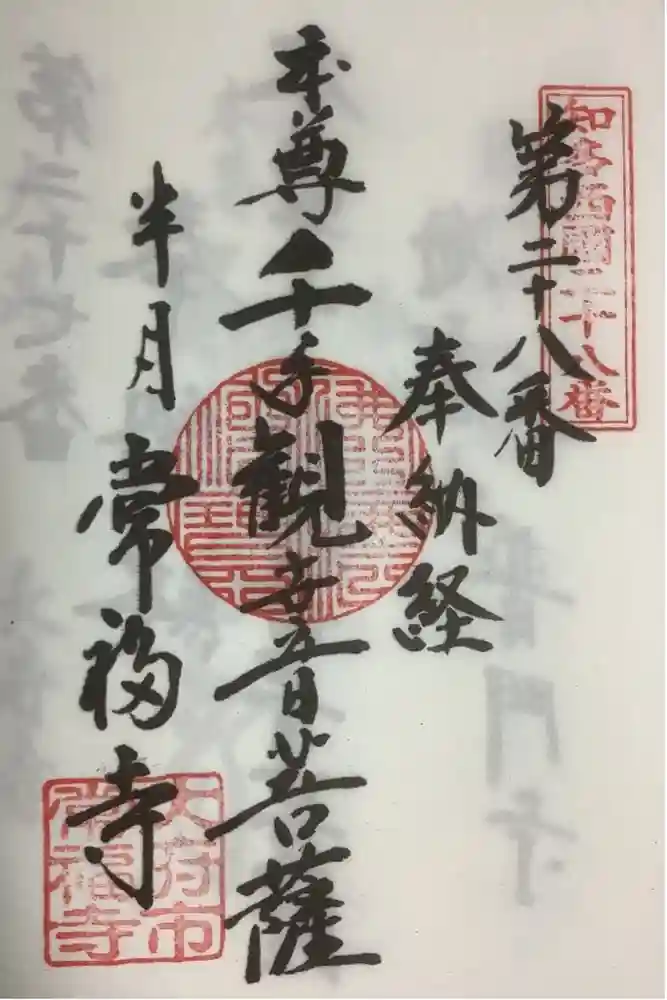 知多西國二十八番
第二十八番
奉納経
本尊千手観世音菩薩
半月
常福寺
大府市
常福寺